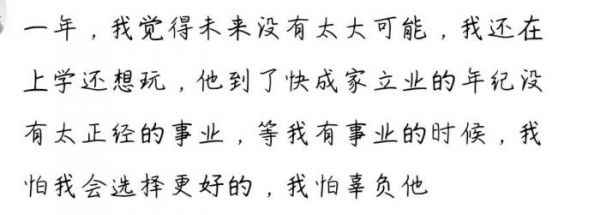 一年，我觉得未来没有太大可能，我还在
上学还想玩，他到了快成家立业的年纪没
有太正经的事业，等我有事业的时候，我
怕我会选择更好的，我怕辜负他